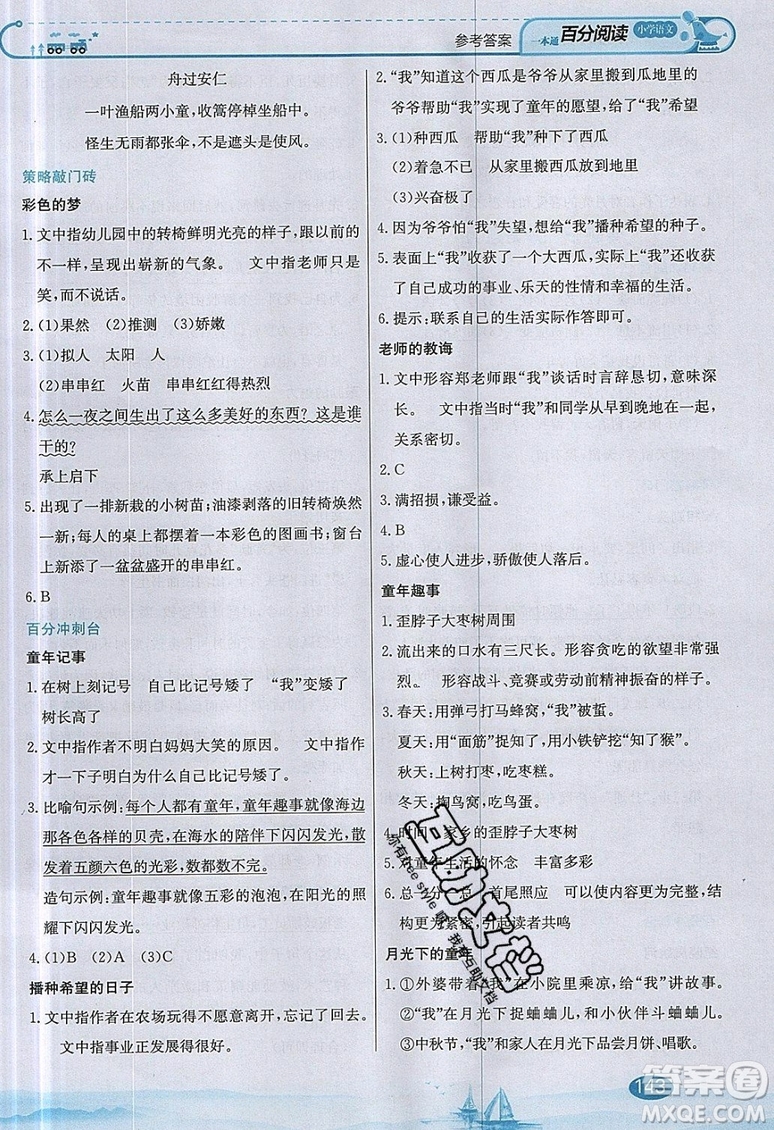 参考答案
一本通 百分阅读 小学语文
舟过安仁
一叶渔船两小童，收篙停棹坐船中。
怪生无雨都张伞，不是遮头是使风。
策略敲门砖
彩色的梦
1. 文中指幼儿园中的转椅鲜明光亮的样子，很
有光彩，呈现出崭新的气象。 文中指老师只是
笑，而不说话。
2. (1)果然 (2)推测 (3)娇嫩
3. (1)拟人 太阳 人
(2)串串红 火苗 串串红红得热烈
4. 怎么一夜之间生出了这么多美好的东西？这是谁
干的？
承上启下
5. 出现了一排新栽的小树苗；油漆剥落的旧转椅焕然
一新；每人的桌上都摆着一本彩色的图画书；窗台
上添了一盆盆盛开的串串红。
6. B
百分冲刺台
童年记事
1. 在树上刻记号 自己比记号矮了 “我”变矮了
树长高了
2. 文中指作者不明白妈妈大笑的原因。 文中指作
者才一下子明白为什么自己比记号矮了。
3. 比喻句示例：每个人都有童年，童年趣事就像海边
那各色各样的贝壳，在海水的陪伴下闪闪发光，散
发着五颜六色的光彩，数都数不完。
造句示例：童年趣事就像五彩的泡泡，在阳光的照
耀下闪闪发光。
4. (1)B (2)A (3)C
播种希望的日子
1. 文中指作者在农场玩得不愿意离开，忘记了回去。
文中指事业正发展得很好。
2. “我”知道这个西瓜是爷爷从家里搬到瓜地里的
爷爷帮助“我”实现了童年的愿望，给“我”希望
3. (1)种西瓜 帮助“我”种下西瓜
(2)着急不已 从家里搬西瓜放到地里
(3)兴奋极了
4. 因为爷爷怕“我”失望，想给“我”播种希望的种子。
5. 表面上“我”收获了一个大西瓜，实际上“我”还收获
了自己成功的事业、乐天的性情和幸福的生活。
6. 提示：联系自己的生活实际作答即可。
老师的教诲
1. 文中形容郑老师跟“我”谈话时言辞恳切，意味深
长。 文中指当时“我”和同学从早到晚地在一起，
关系密切。
2. C
3. 满招损，谦受益。
4. B
5. 虚心使人进步，骄傲使人落后。
童年趣事
1. 歪脖子大枣树周围
2. 流出来的口水有三尺长。形容贪吃的欲望非常强
烈。 形容战斗、竞赛或劳动前精神振奋的样子。
3. 春天：用弹弓打马蜂窝，“我”被蜇。
夏天：用“面筋”粘知了，用小铁铲挖“知了猴”。
秋天：上树打枣，吃枣糕。
冬天：掏鸟窝，吃鸟蛋。
4. 时间 家乡的歪脖子大枣树
5. 对童年生活的怀念 丰富多彩
6. 总—分—总 首尾照应 可以使内容更完整，结
构更为紧密，引起读者共鸣
月光下的童年
1. ①外婆带着“我”在小院里乘凉，给“我”讲故事。
②“我”在月光下捉蛐蛐儿，和小伙伴斗蛐蛐儿。
③中秋节，“我”和家人在月光下品尝月饼、唱歌。
互助文档
143
答案圈
MXQE.COM